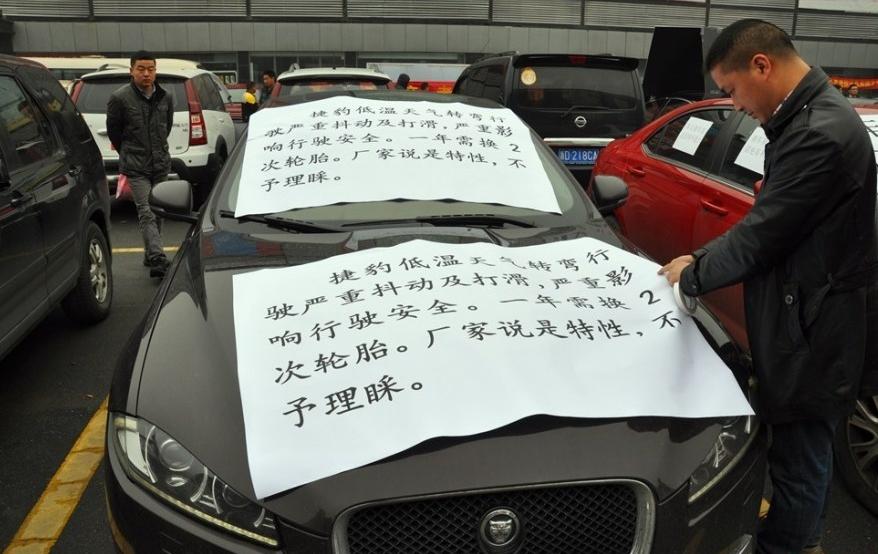 捷豹低温天气转弯行
驶严重抖动及打滑，严重影
响行驶安全。一年需换2
次轮胎。厂家说是特性，不
予理睬。
捷豹低温天气转弯行
驶严重抖动及打滑，严重影
响行驶安全。一年需换2
次轮胎。厂家说是特性，不
予理睬。
D·218CA